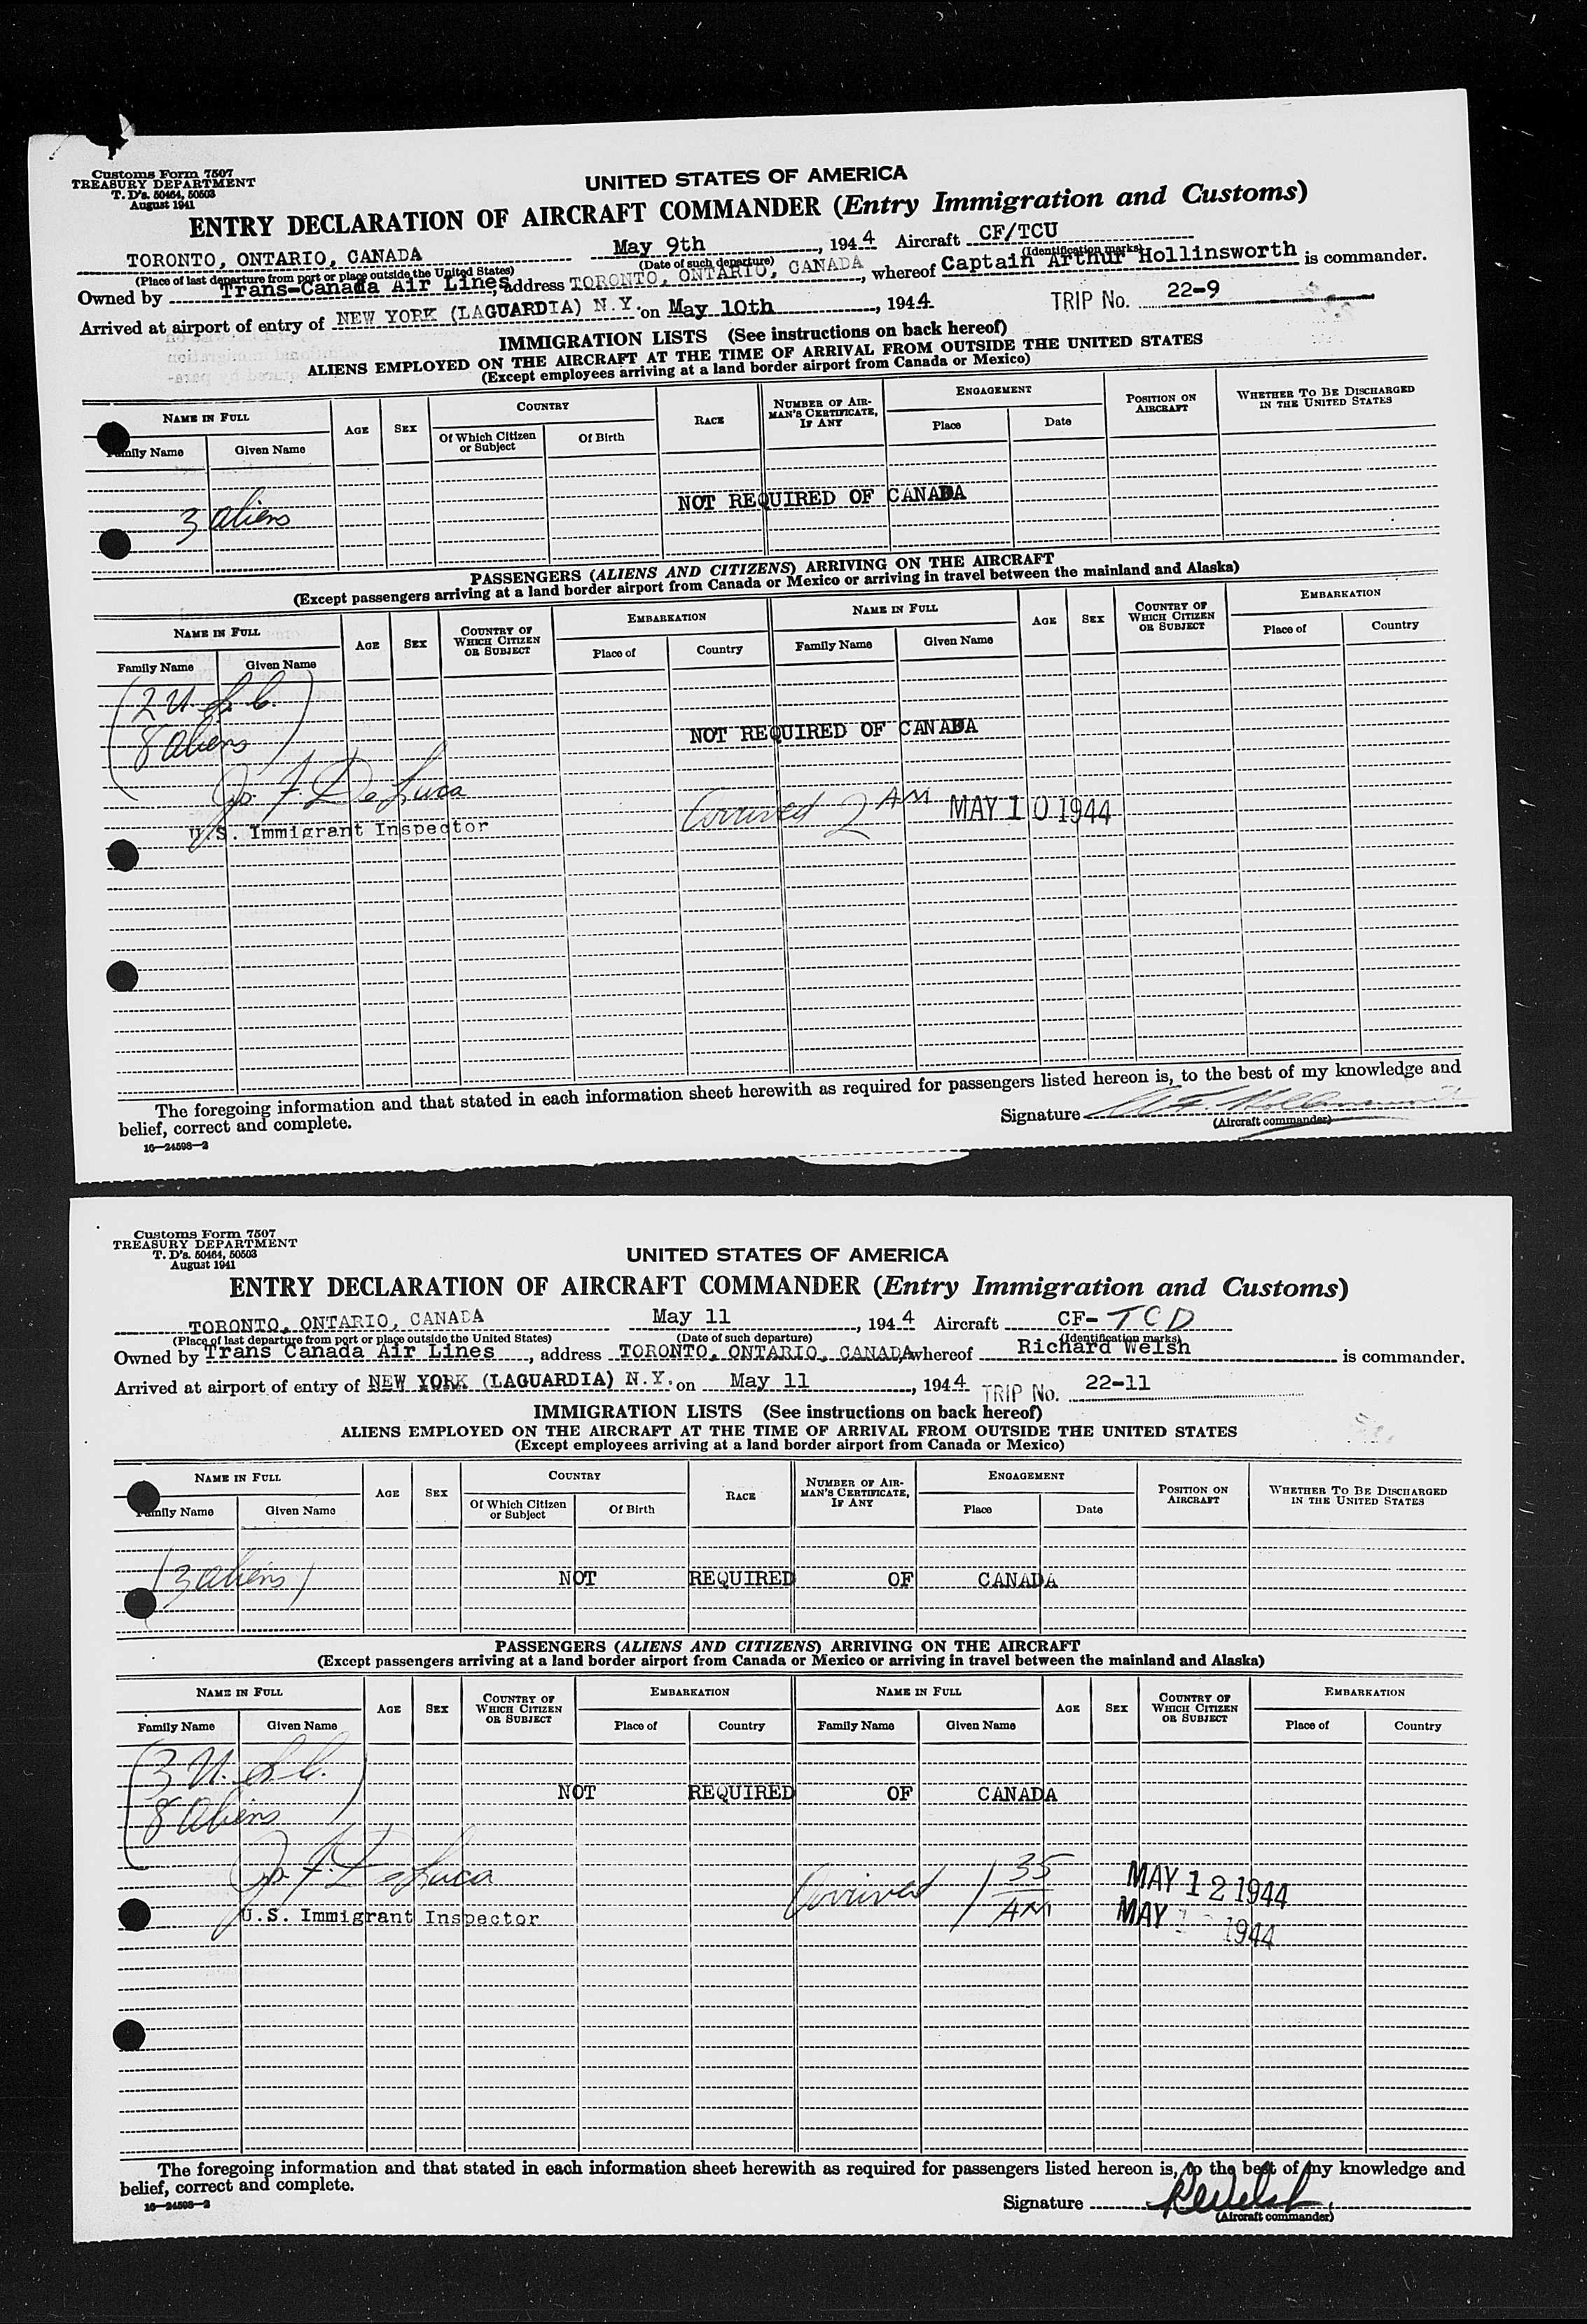 Customs Form 7507
TREASURY DEPARTMENT
T. D's. 50464, 50503
August 1941
UNITED STATES OF AMERICA
ENTRY DECLARATION OF AIRCRAFT COMMANDER (Entry Immigration and Customs)
TORONTO, ONTARIO, CANADA May 9th, 1944 Aircraft CF/TCU
(Place of last departure from port or place outside the United States) (Date of such departure) (Identification marks)
Owned by Trans-Canada Air Lines, address TORONTO, ONTARIO, CANADA, whereof Captain Arthur Hollinsworth is commander.
Arrived at airport of entry of NEW YORK (LAGUARDIA) N.Y. on May 10th, 1944 TRIP No. 22-9
IMMIGRATION LISTS (See instructions on back hereof)
ALIENS EMPLOYED ON THE AIRCRAFT AT THE TIME OF ARRIVAL FROM OUTSIDE THE UNITED STATES
(Except employees arriving at a land border airport from Canada or Mexico)
NAME IN FULL AGE SEX COUNTRY RACE NUMBER OF AIRMAN'S CERTIFICATE, IF ANY ENGAGEMENT POSITION ON AIRCRAFT WHETHER TO BE DISCHARGED IN THE UNITED STATES
Family Name Given Name Of Which Citizen or Subject Of Birth Place Date
3 aliens NOT REQUIRED OF CANADA
PASSENGERS (ALIENS AND CITIZENS) ARRIVING ON THE AIRCRAFT
(Except passengers arriving at a land border airport from Canada or Mexico or arriving in travel between the mainland and Alaska)
NAME IN FULL AGE SEX COUNTRY OF WHICH CITIZEN OR SUBJECT EMBARKATION NAME IN FULL AGE SEX COUNTRY OF WHICH CITIZEN OR SUBJECT EMBARKATION
Family Name Given Name Place of Country Family Name Given Name Place of Country
(2 U.S.C.
8 aliens) NOT REQUIRED OF CANADA
Jos. F. DeLuca
U.S. Immigrant Inspector Arrived 2 AM MAY 10 1944
The foregoing information and that stated in each information sheet herewith as required for passengers listed hereon is, to the best of my knowledge and
belief, correct and complete.
Signature
(Aircraft commander)
16—24598-2
Customs Form 7507
TREASURY DEPARTMENT
T. D's. 50464, 50503
August 1941
UNITED STATES OF AMERICA
ENTRY DECLARATION OF AIRCRAFT COMMANDER (Entry Immigration and Customs)
TORONTO, ONTARIO, CANADA May 11, 1944 Aircraft CF-TCD
(Place of last departure from port or place outside the United States) (Date of such departure) (Identification marks)
Owned by Trans Canada Air Lines, address TORONTO, ONTARIO, CANADA, whereof Richard Welsh is commander.
Arrived at airport of entry of NEW YORK (LAGUARDIA) N.Y. on May 11, 1944 TRIP No. 22-11
IMMIGRATION LISTS (See instructions on back hereof)
ALIENS EMPLOYED ON THE AIRCRAFT AT THE TIME OF ARRIVAL FROM OUTSIDE THE UNITED STATES
(Except employees arriving at a land border airport from Canada or Mexico)
NAME IN FULL AGE SEX COUNTRY RACE NUMBER OF AIRMAN'S CERTIFICATE, IF ANY ENGAGEMENT POSITION ON AIRCRAFT WHETHER TO BE DISCHARGED IN THE UNITED STATES
Family Name Given Name Of Which Citizen or Subject Of Birth Place Date
(3 aliens) NOT REQUIRED OF CANADA
PASSENGERS (ALIENS AND CITIZENS) ARRIVING ON THE AIRCRAFT
(Except passengers arriving at a land border airport from Canada or Mexico or arriving in travel between the mainland and Alaska)
NAME IN FULL AGE SEX COUNTRY OF WHICH CITIZEN OR SUBJECT EMBARKATION NAME IN FULL AGE SEX COUNTRY OF WHICH CITIZEN OR SUBJECT EMBARKATION
Family Name Given Name Place of Country Family Name Given Name Place of Country
(3 U.S.C.
8 aliens) NOT REQUIRED OF CANADA
Jos. F. DeLuca Arrived 1 35 AM MAY 12 1944
U.S. Immigrant Inspector MAY 1944
The foregoing information and that stated in each information sheet herewith as required for passengers listed hereon is, to the best of my knowledge and
belief, correct and complete.
Signature R Welsh
(Aircraft commander)
16—24598-2